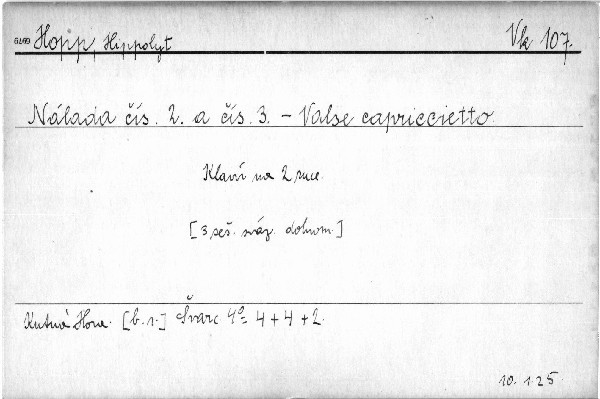 Hopp, Hippolyt Vk 107.
Nálada čís. 2. a čís. 3. – Valse capriccietto.
Klavír na 2 ruce.
[3 seš. sváz. dohrom.]
Kutná Hora. [b. r.] Švarc 4° 4 + 4 + 2.
10. 1. 25